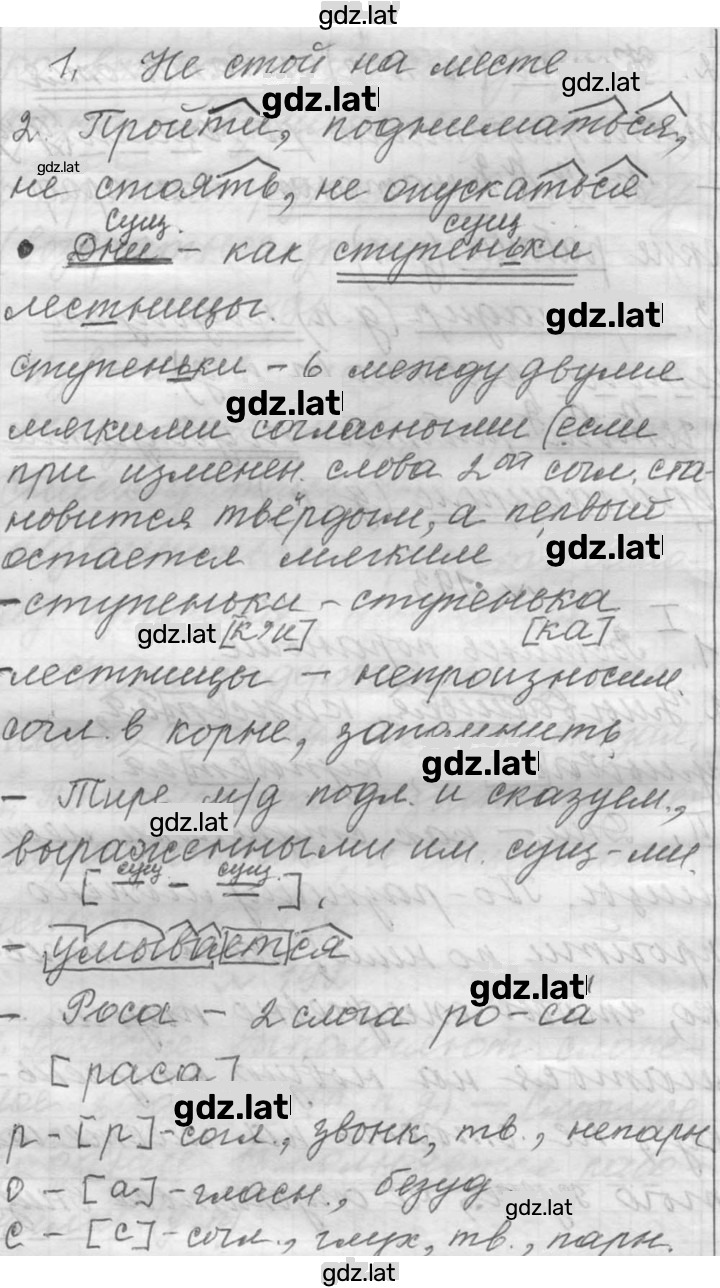 gdz.lat
1. Не стой на месте
gdz.lat gdz.lat
2. Пройти, подниматься,
gdz.lat
не стоять, не опускаться
сущ. сущ
• Дни – как ступеньки
лестницы.
gdz.lat
ступеньки – ь между двумя
gdz.lat
мягкими согласными (если
при изменен. слова 2ой согл. ста-
новится твёрдым, а первый
остается мягким
gdz.lat
- ступеньки – ступенька
gdz.lat [к'и] [ка]
- лестницы – непроизносим.
согл. в корне, запомнить
gdz.lat
– Тире м/д подл. и сказуем.,
gdz.lat
выраженными им. сущ-ми.
[сущ – сущ.].
– умывается
gdz.lat
– Роса – 2 слога ро-са
[раса]
gdz.lat
р – [р] - согл., звонк, тв., непарн
о – [а] - гласн., безуд
gdz.lat
с – [с] - согл., глух, тв., парн.
gdz.lat